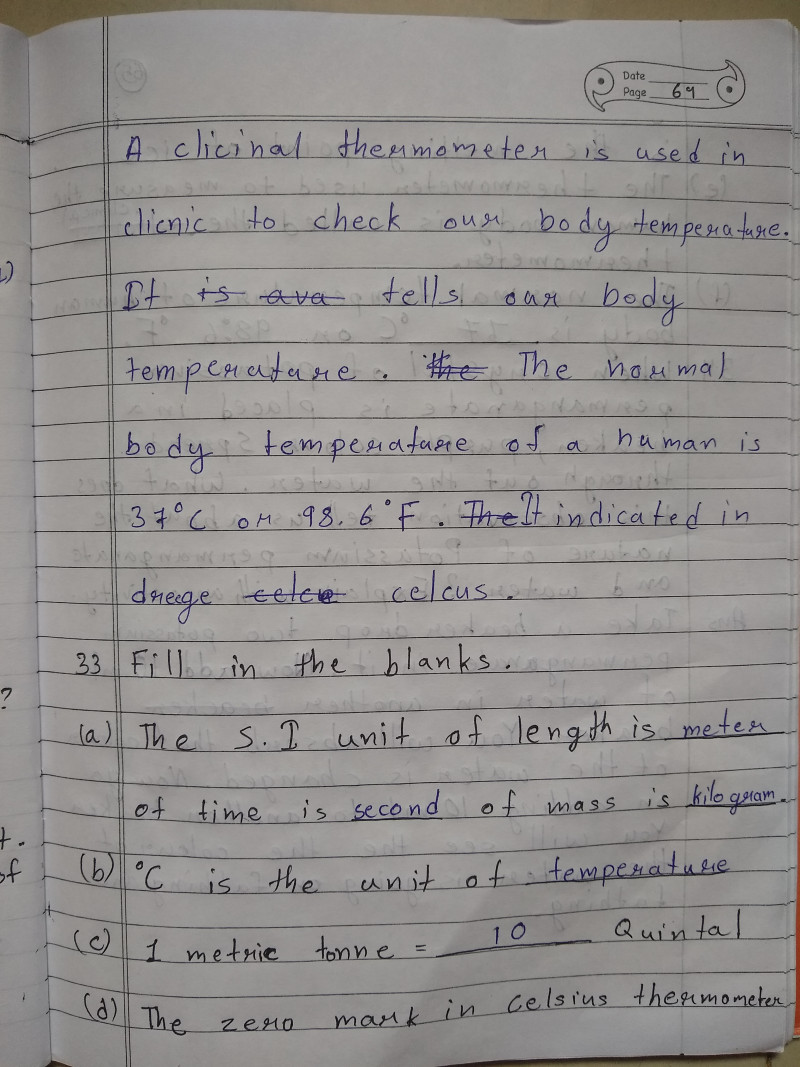 Date
Page 69
A clicinal thermometer is used in
clicnic to check our body temperature.
It is ava tells our body
temperature. the The normal
body temperature of a human is
37°C or 98.6°F. The It indicated in
dreege celce celcus.
33 Fill in the blanks.
(a) The S.I unit of length is meter
of time is second of mass is kilogram.
(b) °C is the unit of temperature
(c) 1 metric tonne = 10 Quintal
(d) The zero mark in Celsius thermometer